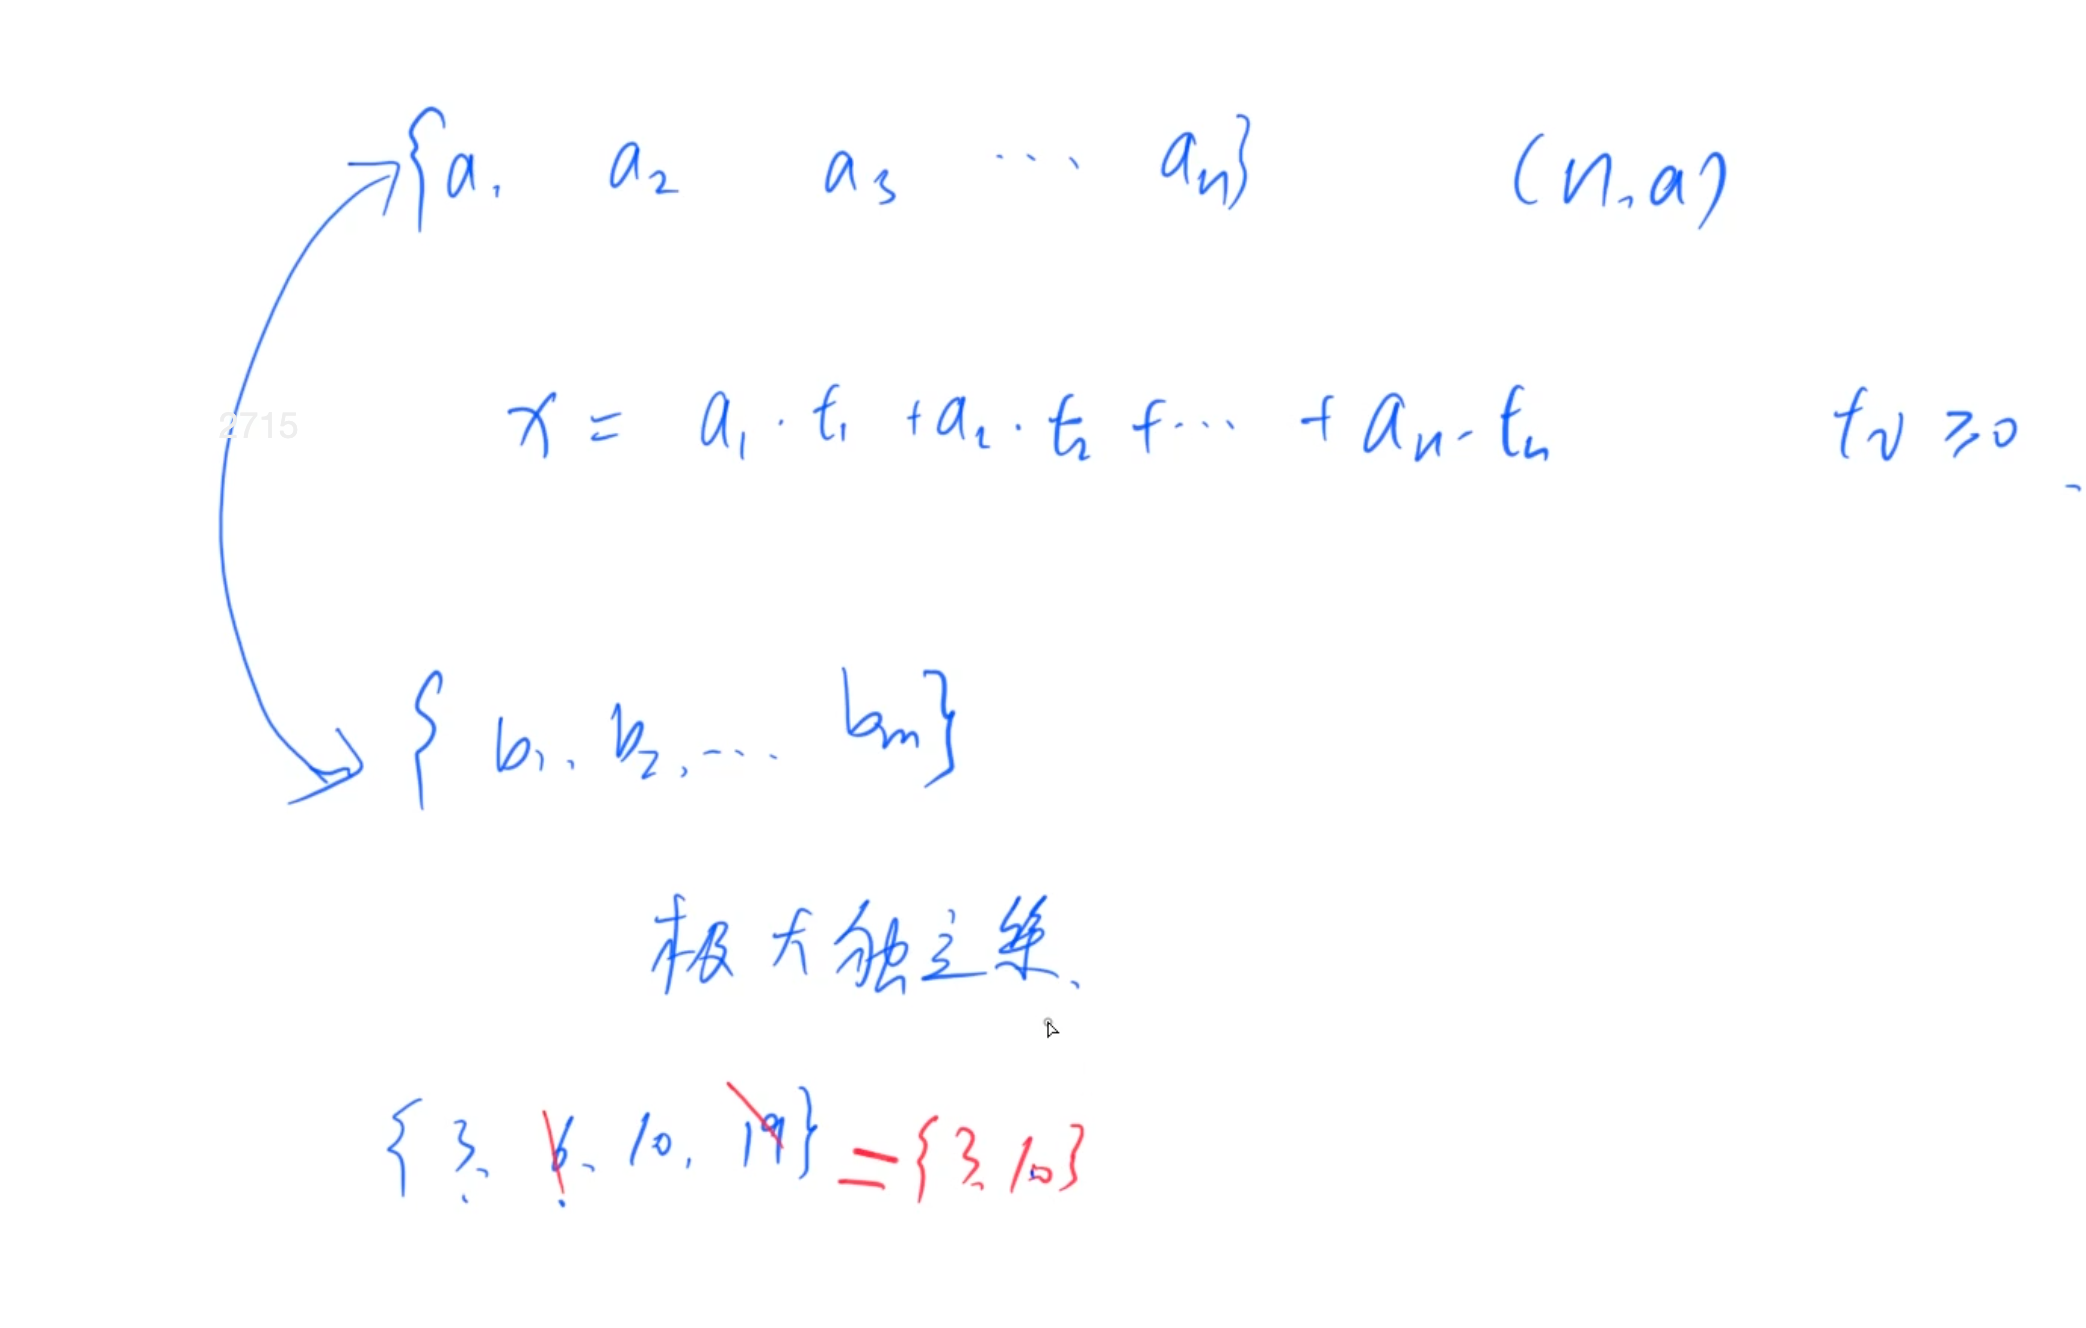 {a1 a2 a3 ... an} (n, a)
2715
x = a1 · t1 + a2 · t2 + ... + an · tn ti ≥ 0
{ b1, b2, ... bm}
极大独立集、
{ 3, 6, 10, 19} = {3, 10}